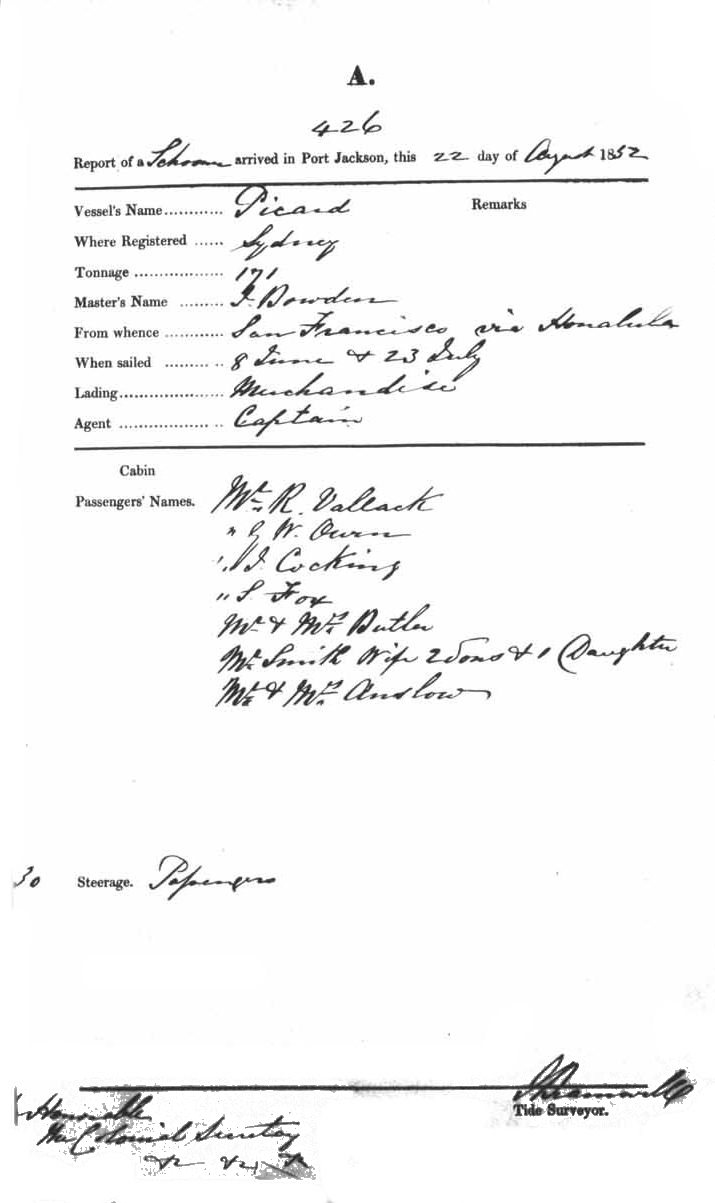 A.
426
Report of a Schooner arrived in Port Jackson, this 22 day of August 1852
Vessel's Name............ Picard Remarks
Where Registered ...... Sydney
Tonnage .................. 171
Master's Name ......... J. Bowden
From whence ............ San Francisco via Honalulu
When sailed ........... 8 June & 23 July
Lading..................... Merchandise
Agent ..................... Captain
Cabin
Passengers' Names. Mr. R. Vallack
" G W. Owen
" J. Cocking
" S. Fox
Mr & Mrs Butler
Mr. Smith Wife 2 Sons & 1 Daughter
Mr. & Mrs. Anslow
30 Steerage. Passengers
Tide Surveyor.
Honorable
The Colonial Secretary
&c &c &c